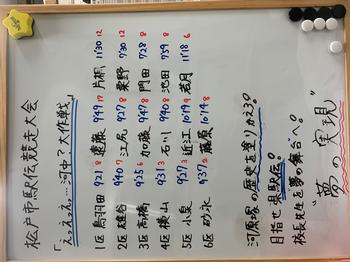 松戸市駅伝競走大会
「えっえっえっ…河中?大作戦」
1区 鳥羽田 9'21 8 遠藤 9'49 17 片桐 11'30 12
2区 9'40 7 江尻 9'27 8 栗野 7'30 12
3区 高橋 9'35 6 加藤 9'47 8 門田 7'28 8
4区 横山 9'31 3 石川 9'40 8 池田 7'59 8
5区 小泉 9'27 3 近江 10'19 9 若月 11'18 6
6区 砂永 9'37 2 藤原 10'14 8
河原塚の歴史を塗りかえろ。
目指せ県駅伝。
校長先生を夢の舞台へ。
"夢の実現"